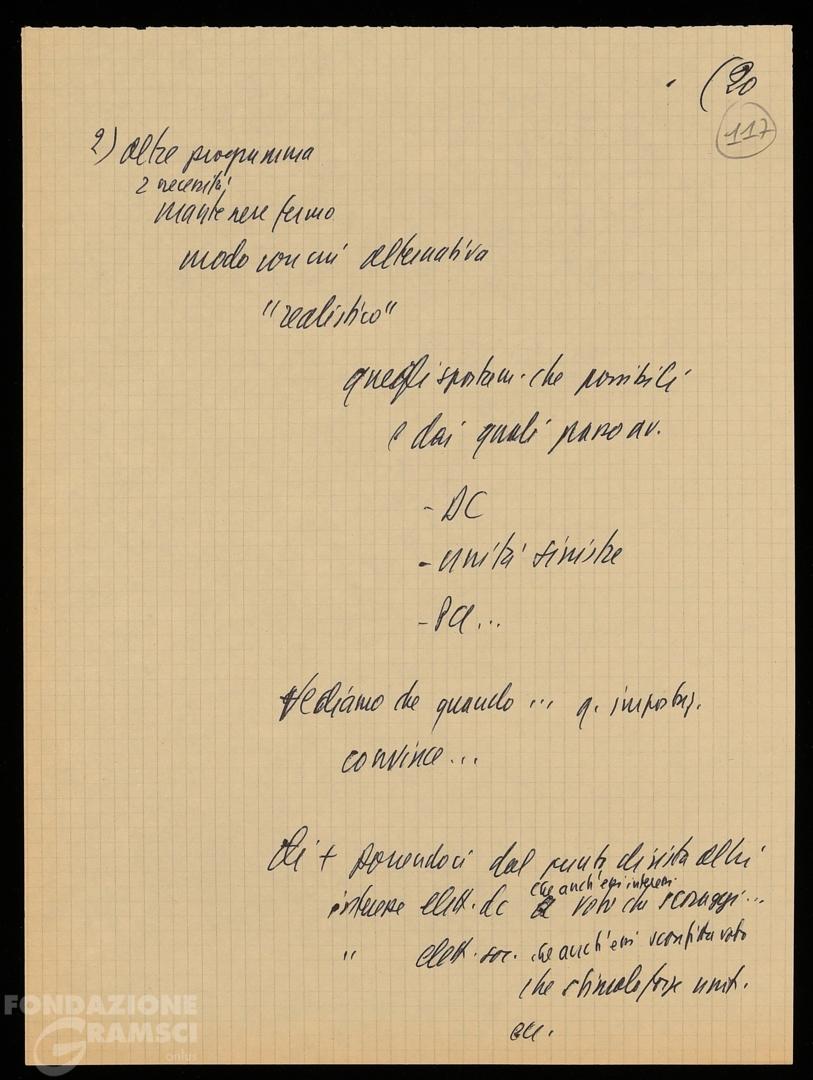 (20
117
2) oltre programma
2 necessità
mantenere fermo
modo con cui alternativa
"realistico"
quegli spostam. che possibili
e dai quali passo av.
- DC
- unità sinistre
- PCI...
Vediamo che quando ... q. impostaz.
convince...
Di + ponendoci dal punto di vista altri
che anch'essi interess.
interesse elett. dc voto che scoraggi...
" elett. soc. che anch'essi sconfitta voto
che stimola forze unit.
ecc.
FONDAZIONE
GRAMSCI
onlus